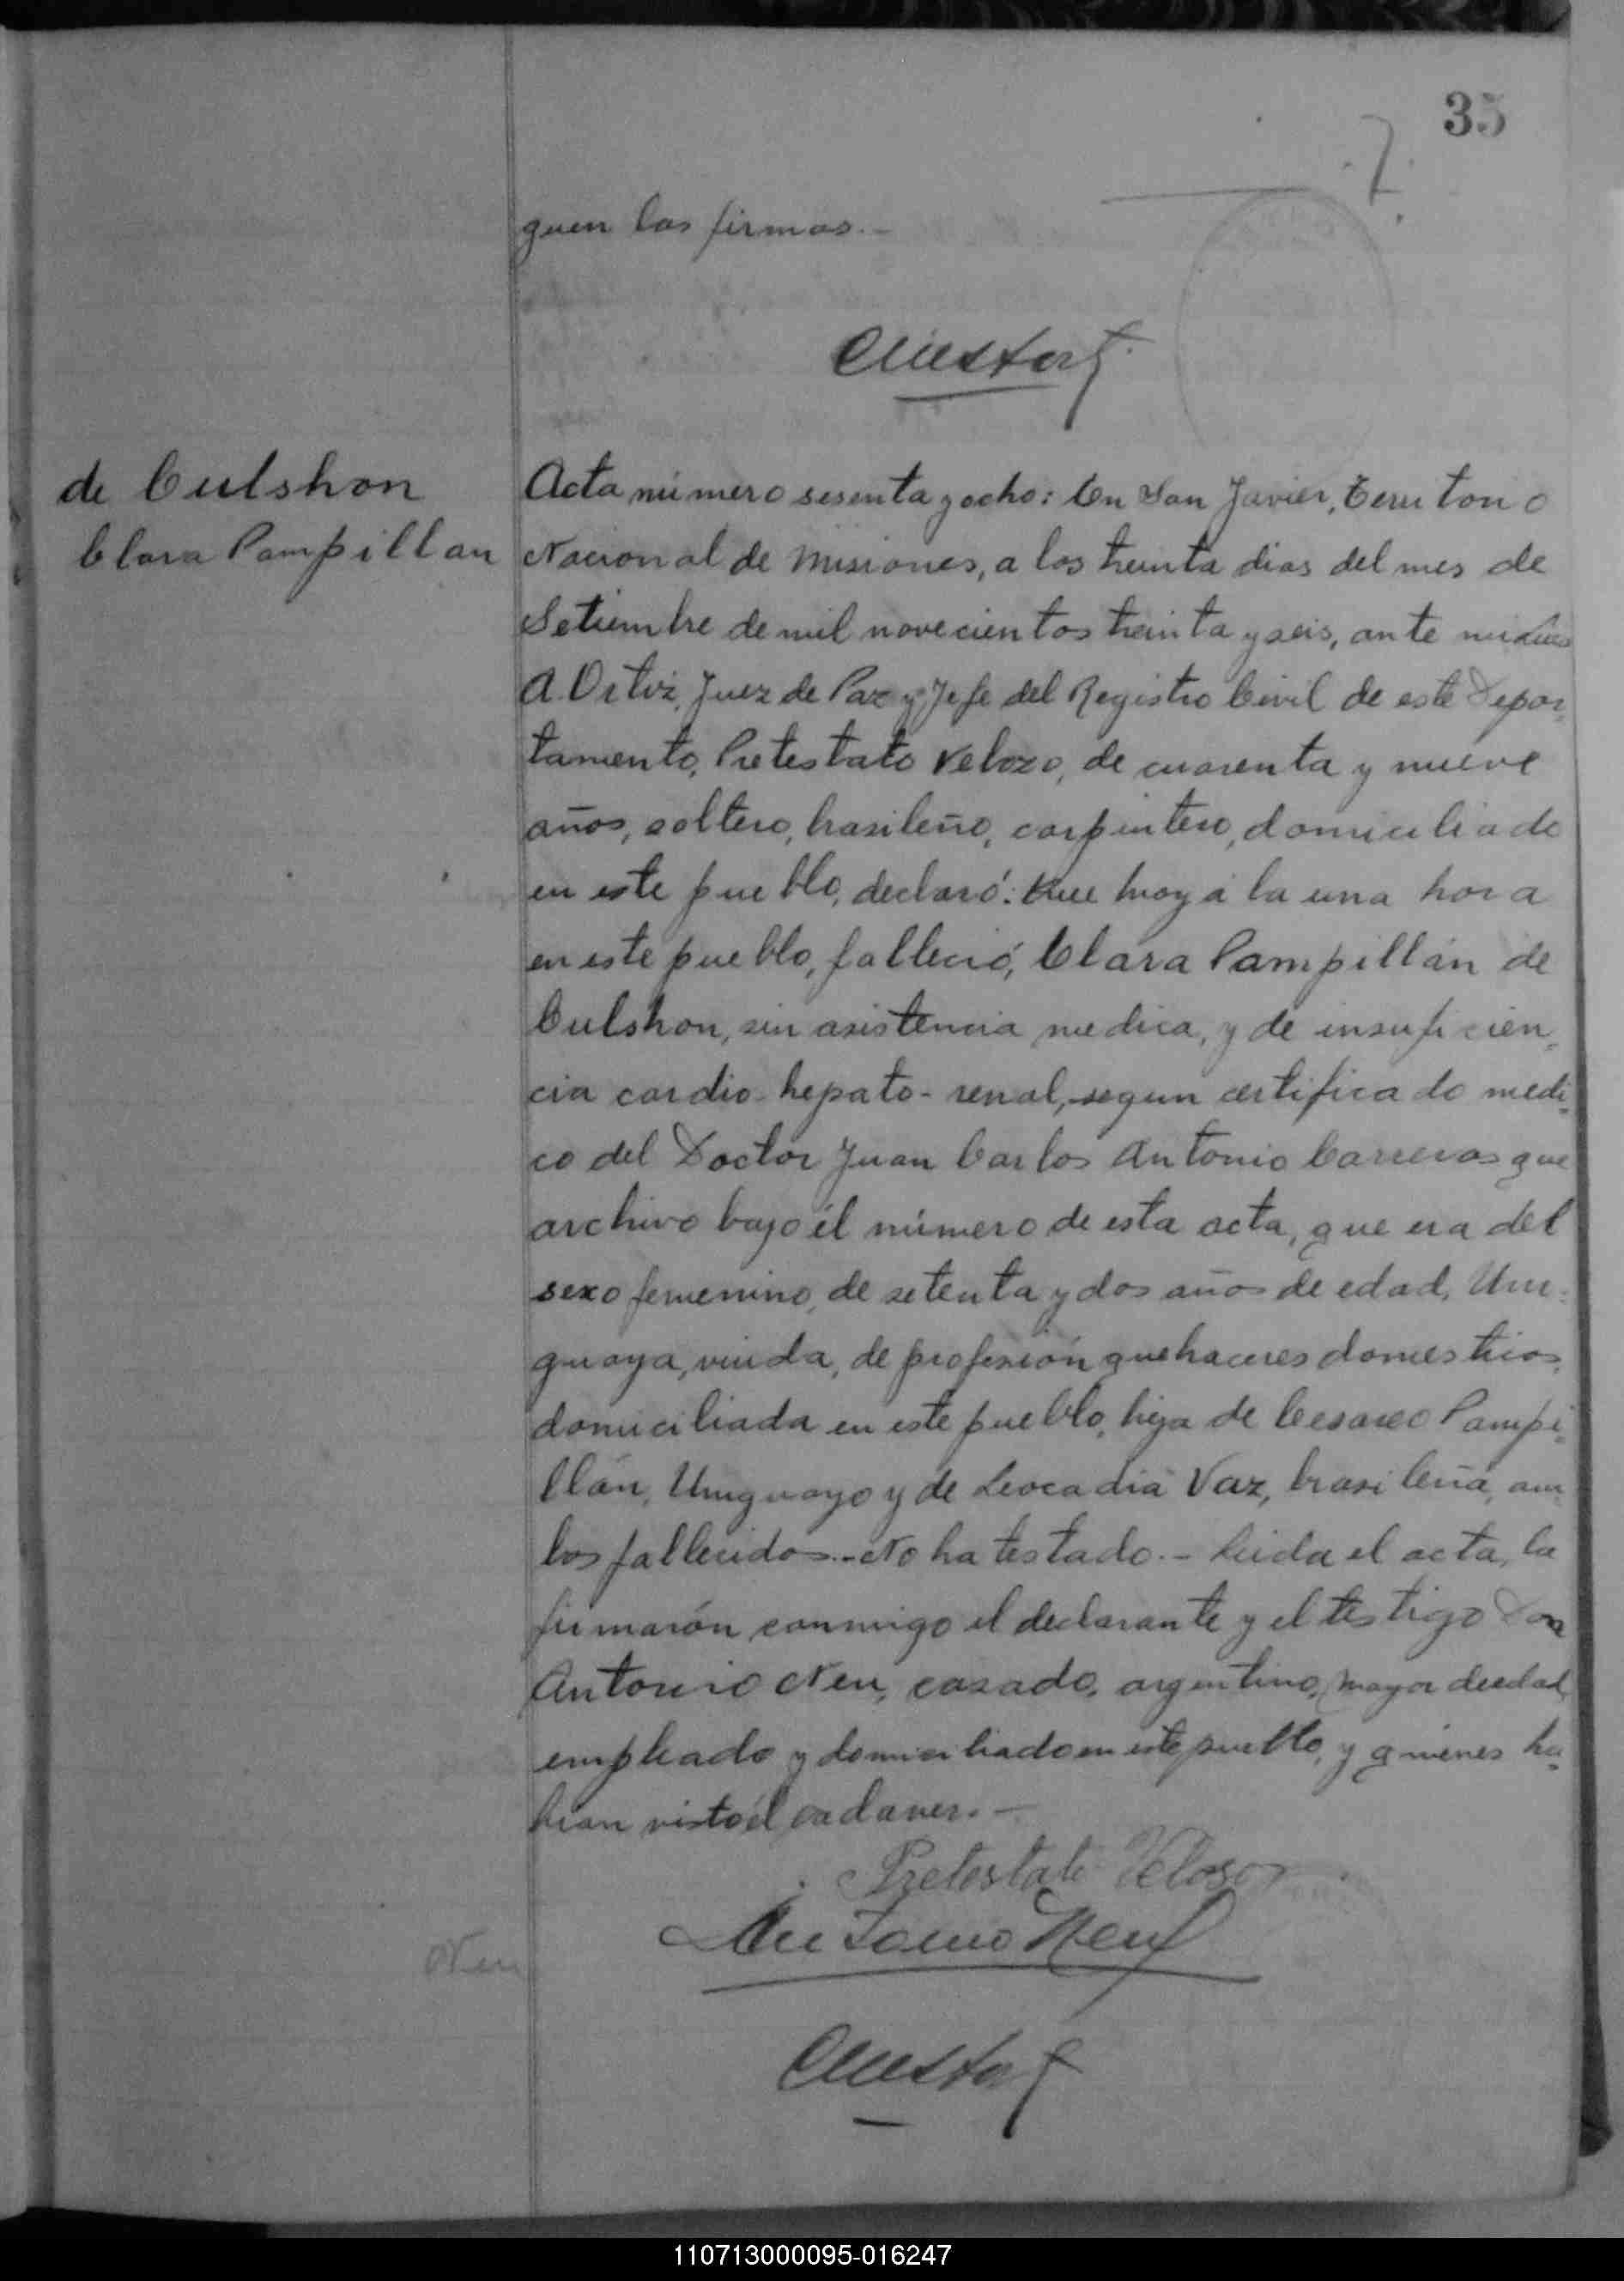 35
guen las firmas.-
de Culshon
Clara Pampillan
Acta número sesenta y ocho: En San Javier, Territorio
Nacional de Misiones, a los treinta dias del mes de
Setiembre de mil novecientos treinta y seis, ante mi
A. Ortiz, Juez de Paz y Jefe del Registro Civil de este Depar-
tamento, Pretestato Velozo, de cuarenta y nueve
años, soltero, brasileño, carpintero, domiciliado
en este pueblo, declaró: Que hoy á la una hora
en este pueblo, falleció, Clara Pampillán de
Culshon, sin asistencia medica, y de insuficien-
cia cardio-hepato-renal, segun certificado medi-
co del Doctor Juan Carlos Antonio Carreras que
archivo bajo él número de esta acta, que era del
sexo femenino, de setenta y dos años de edad, Uru-
guaya, viuda, de profesión quehaceres domesticos,
domiciliada en este pueblo, hija de Cesareo Pampi-
llán, Uruguayo y de Leocadia Vaz, brasileña, am-
bos fallecidos.- No ha testado.- Leida el acta, la
firmarón conmigo el declarante y el testigo Don
Antonio Neu, casado, argentino, mayor de edad,
empleado y domiciliado en este pueblo, y quienes ha-
bian visto él cadaver.-
Pretestato Veloso
Antonio Neu
Neu
110713000095-016247